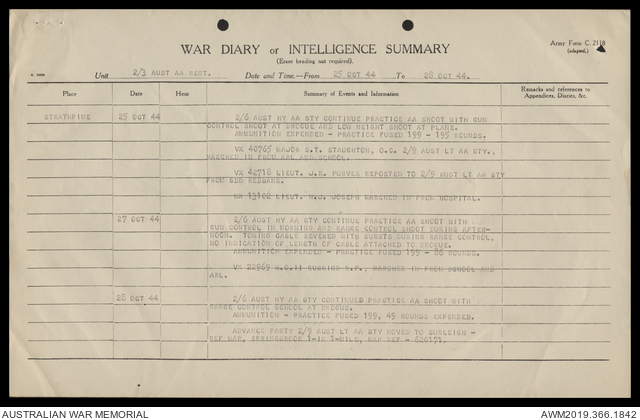 Army Form C. 2118
(adapted.)
WAR DIARY or INTELLIGENCE SUMMARY
(Erase heading not required).
Unit 2/3 AUST AA REGT. Date and Time.—From 25 OCT 44 To 28 OCT 44.
Place Date Hour Summary of Events and Information Remarks and references to Appendices, Diaries, &c.
STRATHPINE 25 OCT 44 2/6 AUST HY AA BTY CONTINUE PRACTICE AA SHOOT WITH GUN
CONTROL SHOOT AT DROGUE AND LOW HEIGHT SHOOT AT PLANE.
AMMUNITION EXPENDED - PRACTICE FUSED 199 - 195 ROUNDS.
VX 40765 MAJOR S.T. STAUGHTON, O.C. 2/9 AUST LT AA BTY.,
MARCHED IN FROM ARL AND SCHOOL.
VX 42718 LIEUT. J.K. PURVES REPOSTED TO 2/9 AUST LT AA BTY
FROM REDBANK.
NX 13102 LIEUT. JOSEPH MARCHED IN FROM HOSPITAL.
27 OCT 44 2/6 AUST HY AA BTY CONTINUE PRACTICE AA SHOOT WITH
GUN CONTROL IN MORNING AND RANGE CONTROL SHOOT DURING AFTER-
NOON. TOWING CABLE SEVERED WITH BURSTS DURING RANGE CONTROL,
NO INDICATION OF LENGTH OF CABLE ATTACHED TO DROGUE.
AMMUNITION EXPENDED - PRACTICE FUSED 199 - 86 ROUNDS.
VX 22969 W.O.II MARCHED IN FROM SCHOOL AND
ARL.
28 OCT 44 2/6 AUST HY AA BTY CONTINUED PRACTICE AA SHOOT WITH
RANGE CONTROL SCHOOL AT DROGUE.
AMMUNITION - PRACTICE FUSED 199, 49 ROUNDS EXPENDED.
ADVANCE PARTY 2/9 AUST LT AA BTY MOVED TO BURLEIGH -
REF MAP, SPRINGBROOK 1-IN 1-MILE, MAP REF - 620171.
AUSTRALIAN WAR MEMORIAL AWM2019.366.1842